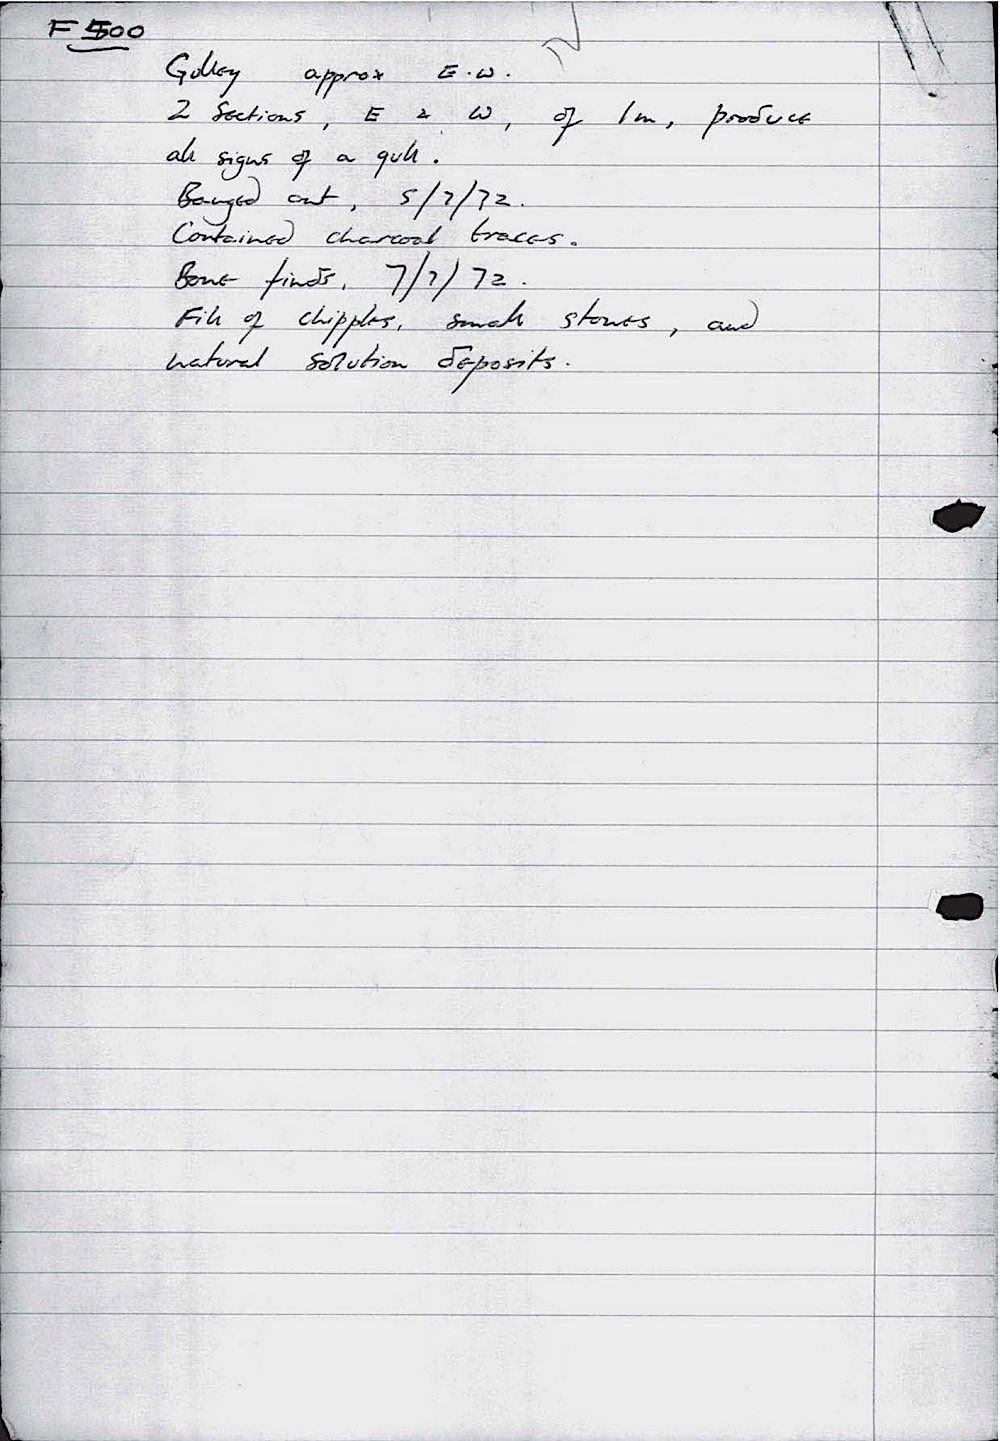 F 500
Gulley approx E.W.
2 Sections, E & W, of 1m, produce
all signs of a gull.
Banged out, 5/7/72.
Contained charcoal traces.
Bone finds, 7/7/72.
Fill of chipples, small stones, and
natural solution deposits.